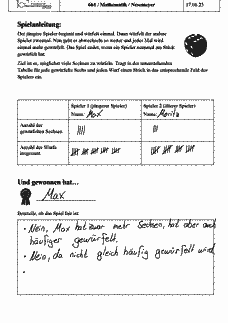 6b1 / Mathematik / Neumeyer 17.01.23
Spielanleitung:
Der jüngere Spieler beginnt und würfelt einmal. Dann würfelt der andere
Spieler zweimal. Nun geht es abwechselnd so weiter und jedes Mal wird
einmal mehr gewürfelt. Das Spiel endet, wenn ein Spieler neunmal am Stück
gewürfelt hat.
Ziel ist es, möglichst viele Sechsen zu würfeln. Tragt in der untenstehenden
Tabelle für jede gewürfelte Sechs und jeden Wurf einen Strich in das entsprechende Feld des
Spielers ein.
Spieler 1 (jüngerer Spieler) Spieler 2 (älterer Spieler)
Name: Max Name: Moritz
Anzahl der
gewürfelten Sechsen
Anzahl der Würfe
insgesamt
Und gewonnen hat...
Max
Beurteile, ob das Spiel fair ist:
• Nein, Max hat zwar mehr Sechsen, hat aber auch
häufiger gewürfelt.
• Nein, da nicht gleich häufig gewürfelt wird
•